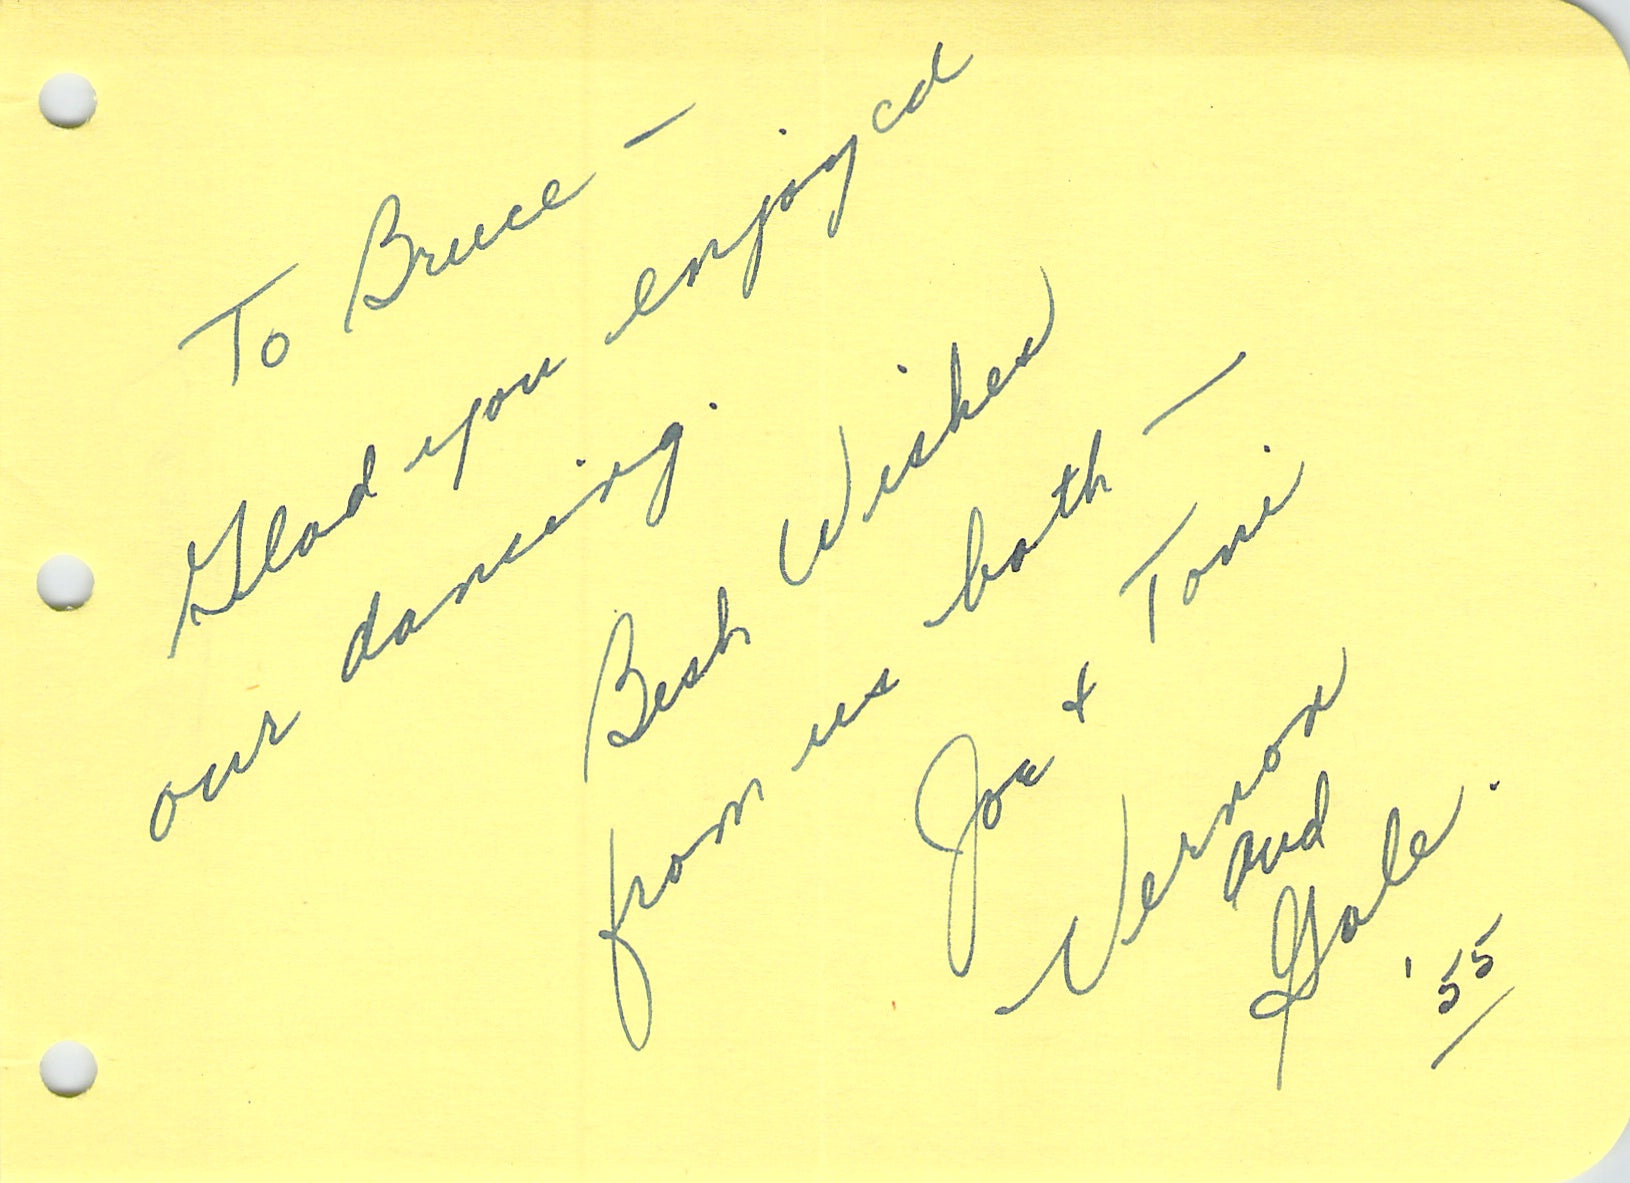 To Bruce —
Glad you enjoyed
our dancing.
Best Wishes
from us both —
Joe + Toni
Vernon
and
Gale.
'55